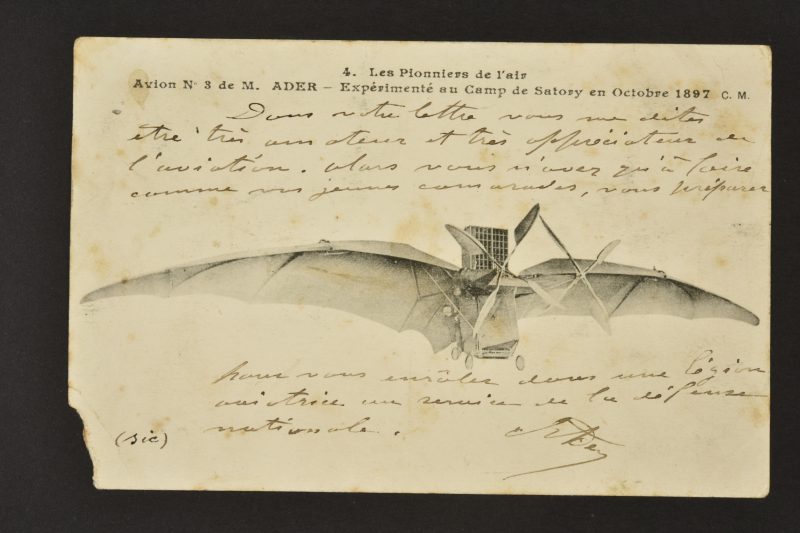 4. Les Pionniers de l'air
Avion N° 3 de M. ADER – Expérimenté au Camp de Satory en Octobre 1897 C. M.
Dans votre lettre vous me dites
être très amateur et très appréciateur de
l'aviation. Alors vous n'avez qu'à faire
comme vos jeunes camarades, vous préparer
pour vous enrôler dans une légion
aviatrice au service de la défense
nationale. Ader
(sic)